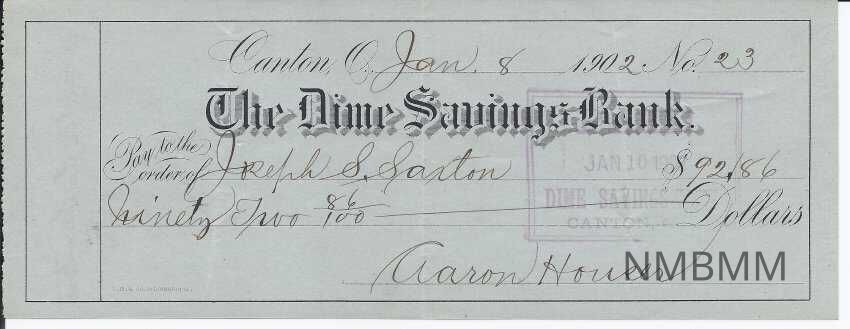 Canton, O., Jan. 8 1902 No. 23
The Dime Savings Bank.
Pay to the order of Joseph S. Saxton $92.86
Ninety Two 86/100 Dollars
JAN 10
DIME SAVINGS
CANTON,
Aaron Houser
NMBMM